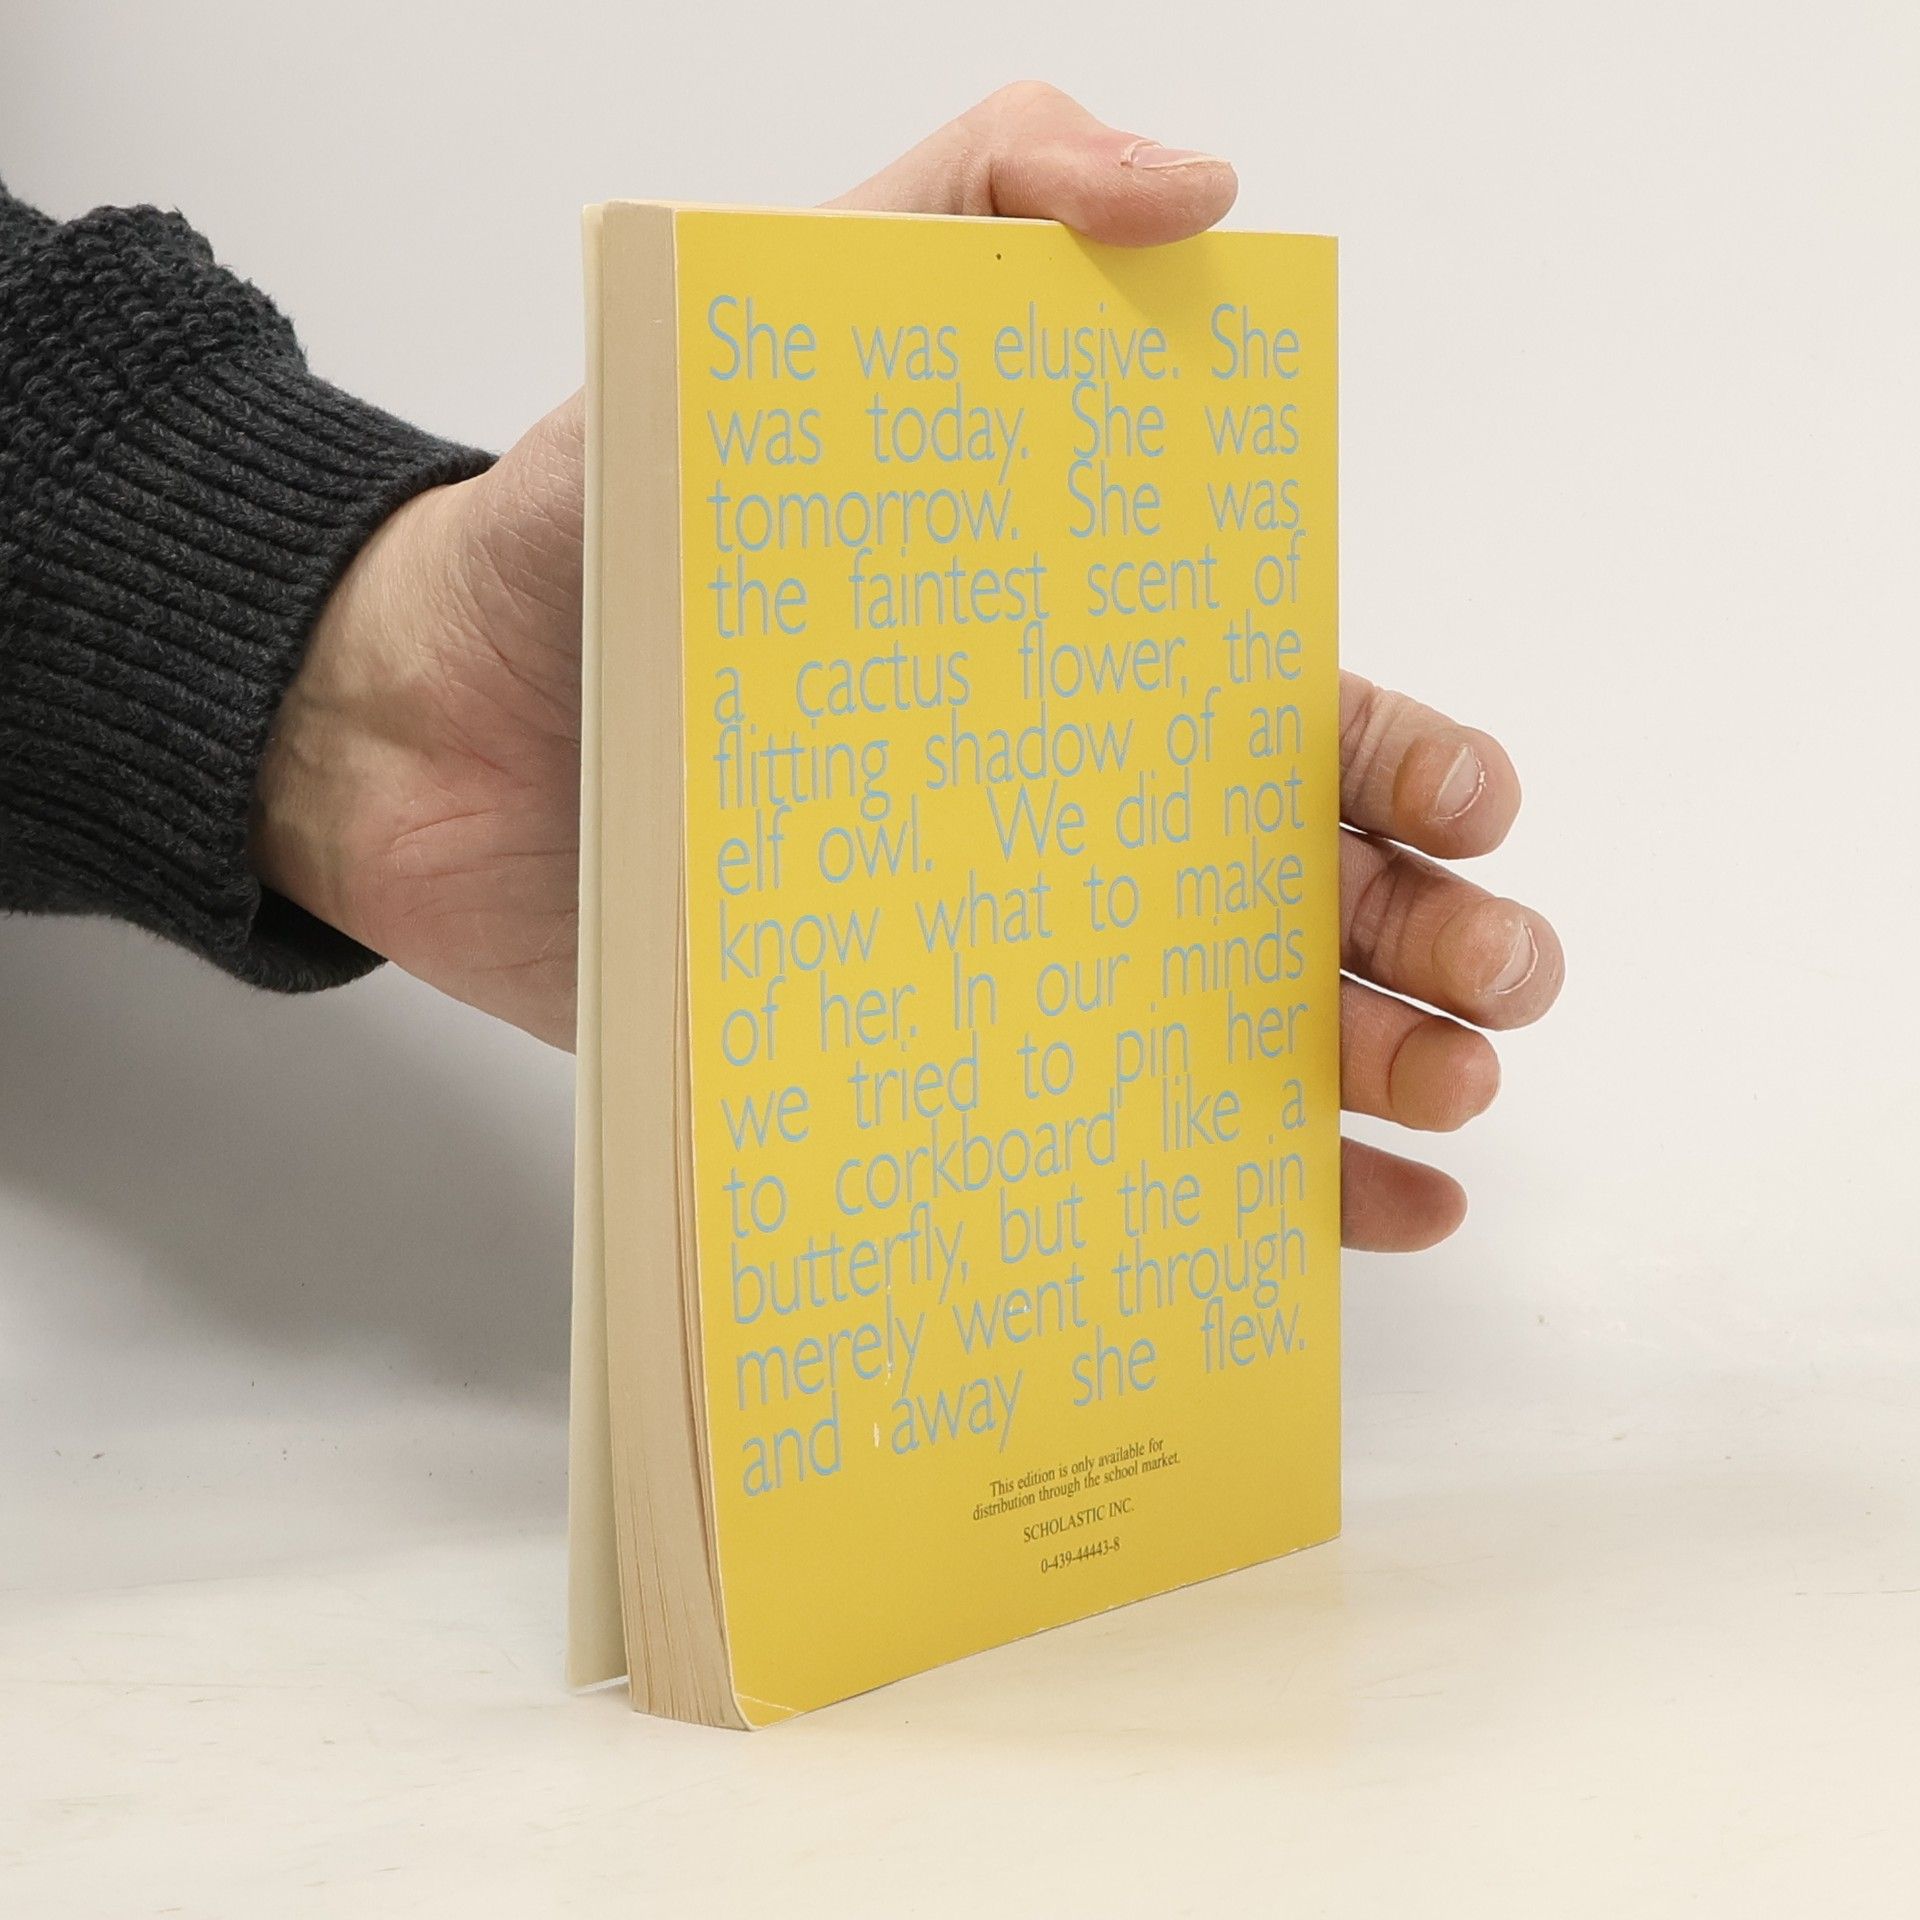 She was elusive. She
was today. She was
tomorrow. She was
the faintest scent of
a cactus flower, the
flitting shadow of an
elf owl. We did not
know what to make
of her. In our minds
we tried to pin her
to corkboard like a
butterfly, but the pin
merely went through
and away she flew.
This edition is only available for
distribution through the school market.
SCHOLASTIC INC.
0-439-44443-8